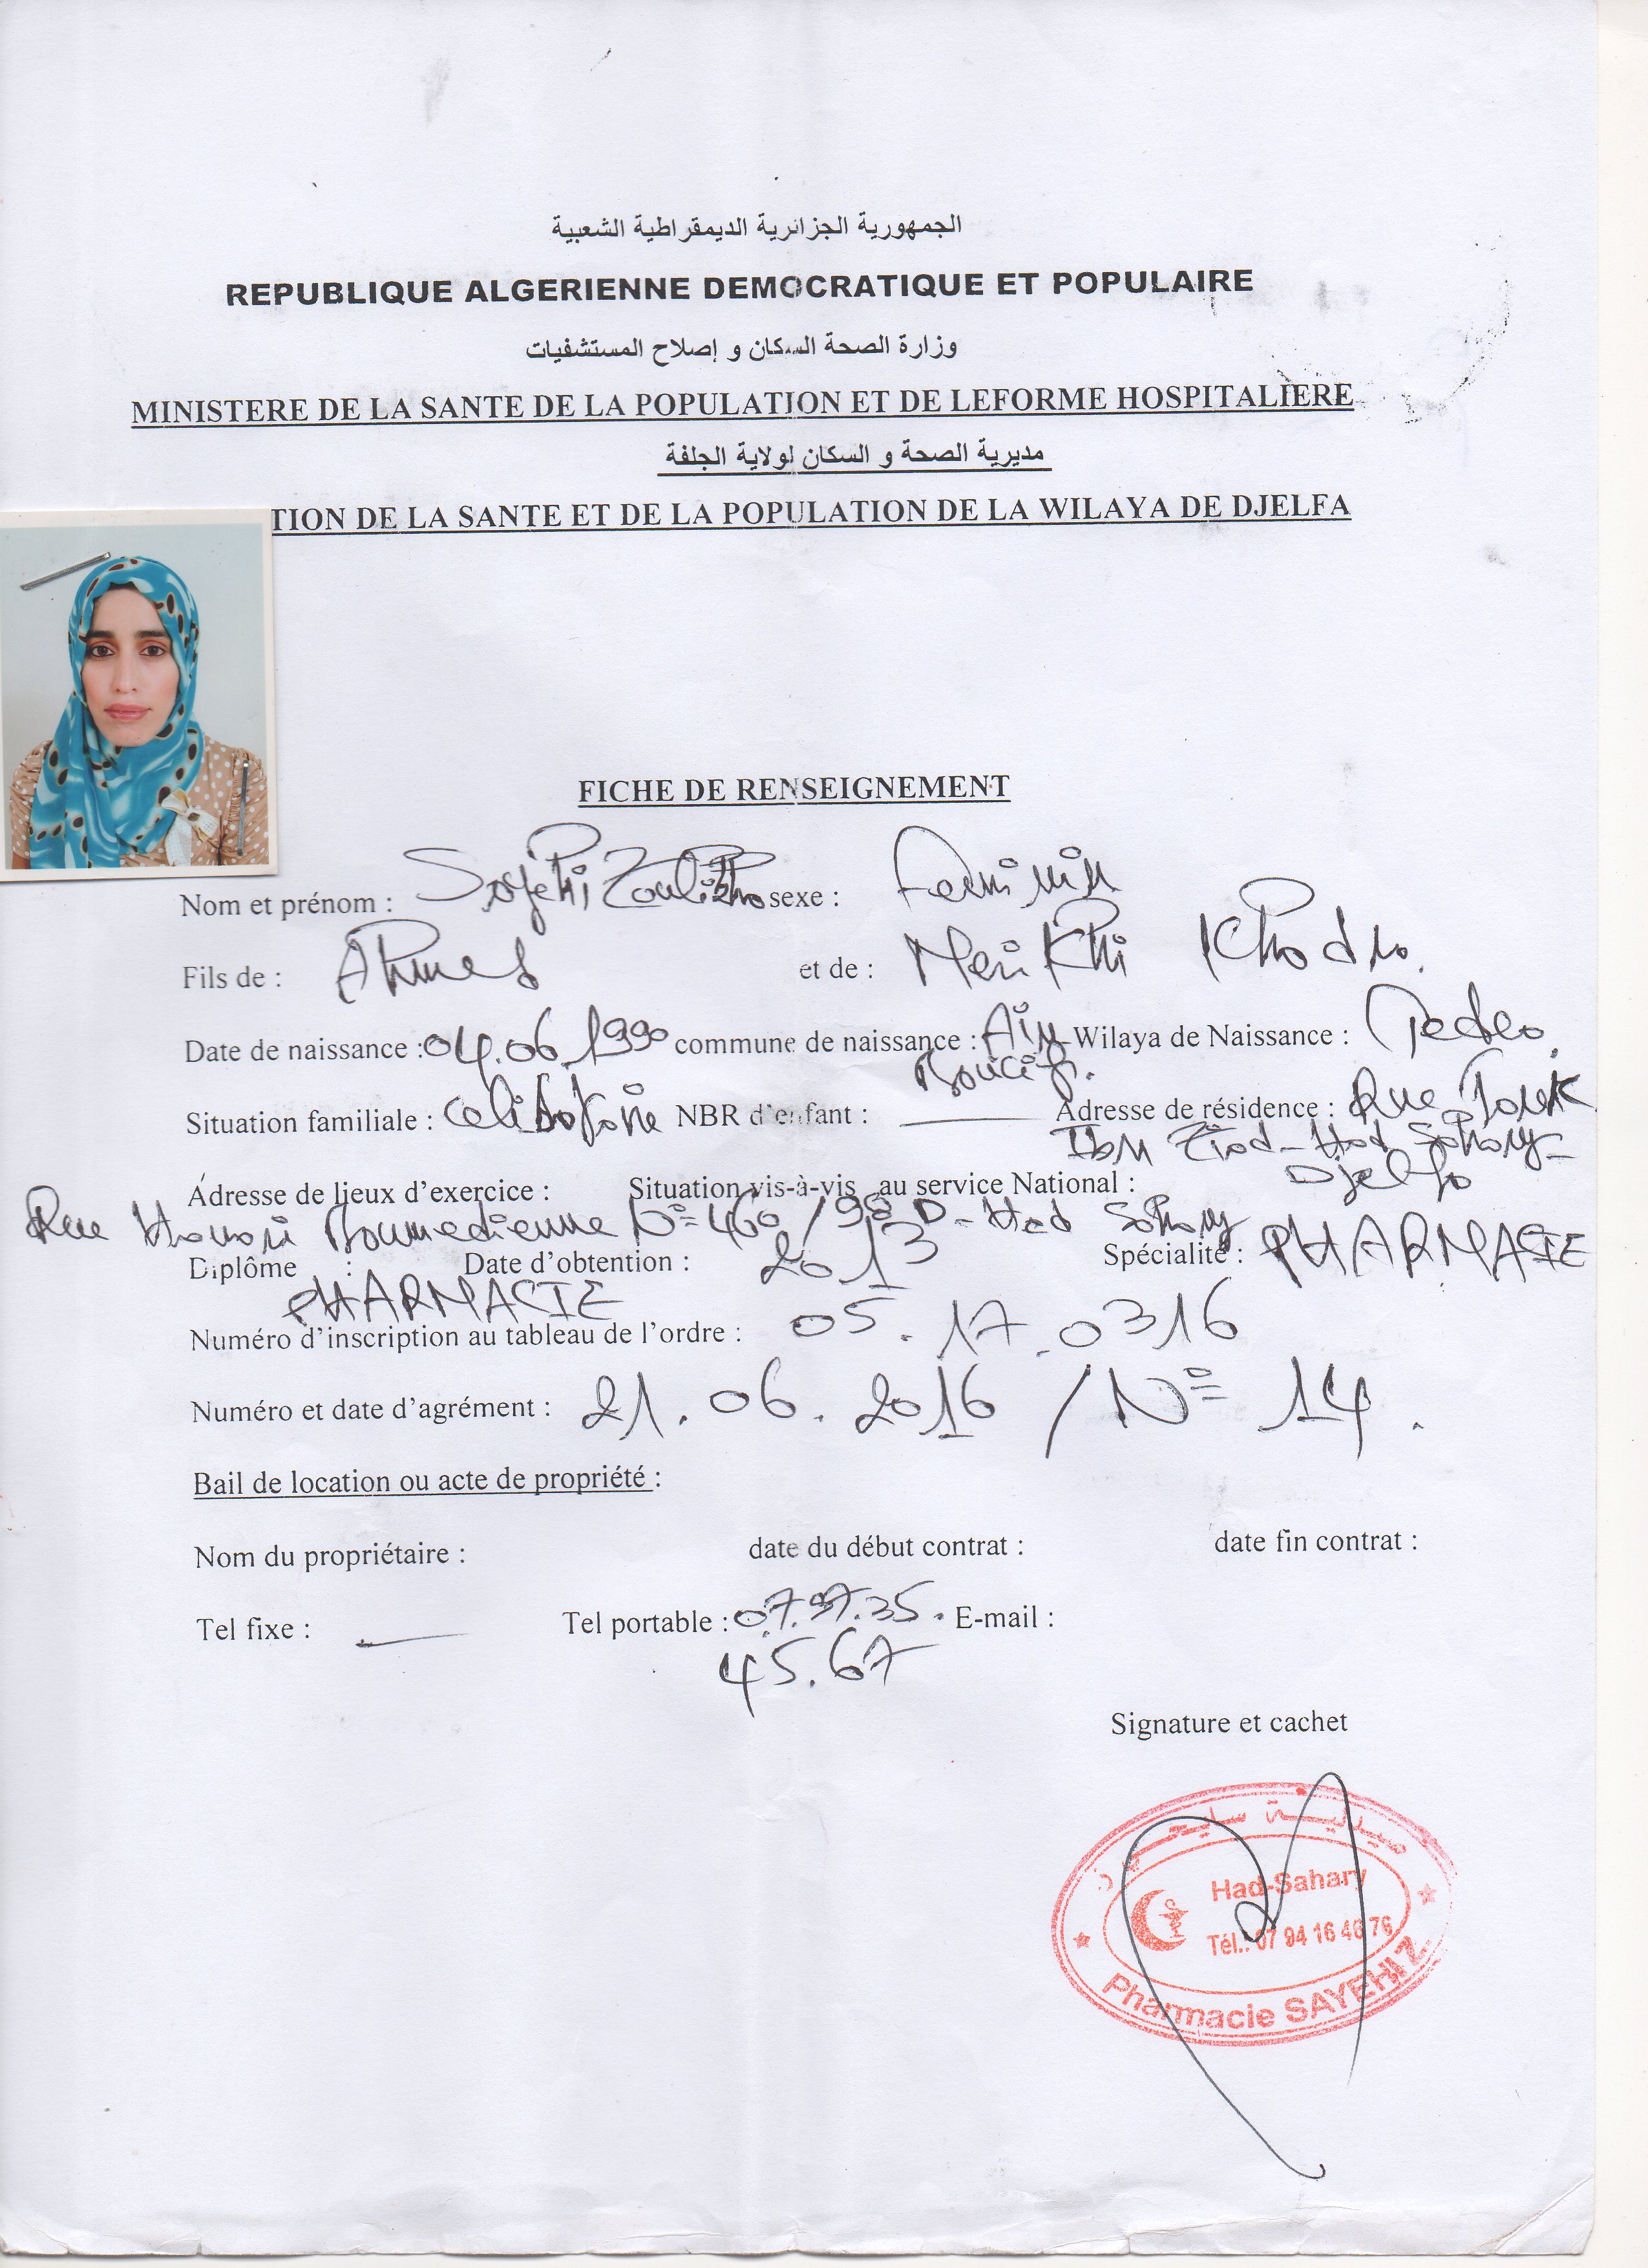 الجمهورية الجزائرية الديمقراطية الشعبية
REPUBLIQUE ALGERIENNE DEMOCRATIQUE ET POPULAIRE
وزارة الصحة السكان و إصلاح المستشفيات
MINISTERE DE LA SANTE DE LA POPULATION ET DE LEFORME HOSPITALIERE
مديرية الصحة و السكان لولاية الجلفة
TION DE LA SANTE ET DE LA POPULATION DE LA WILAYA DE DJELFA
FICHE DE RENSEIGNEMENT
Nom et prénom : Sayehi Zoulikha sexe : Feminin
Fils de : Ahmed et de : Merikhi Khadra.
Date de naissance : 04.06.1990 commune de naissance : Ain Wilaya de Naissance :
Boucif.
Situation familiale : celibataire NBR d'enfant : Adresse de résidence : Rue Tarek
Ibn Ziad - Had Sahary -
Adresse de lieux d'exercice : Situation vis-à-vis au service National : Djelfa
Rue Houari Boumedienne N= 460 / 98 D - Had Sahary
Diplôme : Date d'obtention : 2013 Spécialité : PHARMACIE
PHARMACIE
Numéro d'inscription au tableau de l'ordre : 05.17.0316
Numéro et date d'agrément : 21.06.2016 / N= 14.
Bail de location ou acte de propriété :
Nom du propriétaire : date du début contrat : date fin contrat :
Tel fixe : Tel portable : 07.97.35. E-mail :
45.67
Signature et cachet
صيدلية سايحي ز
Had-Sahary
Tél.: 07 94 16 48 76
Pharmacie SAYEHI Z.